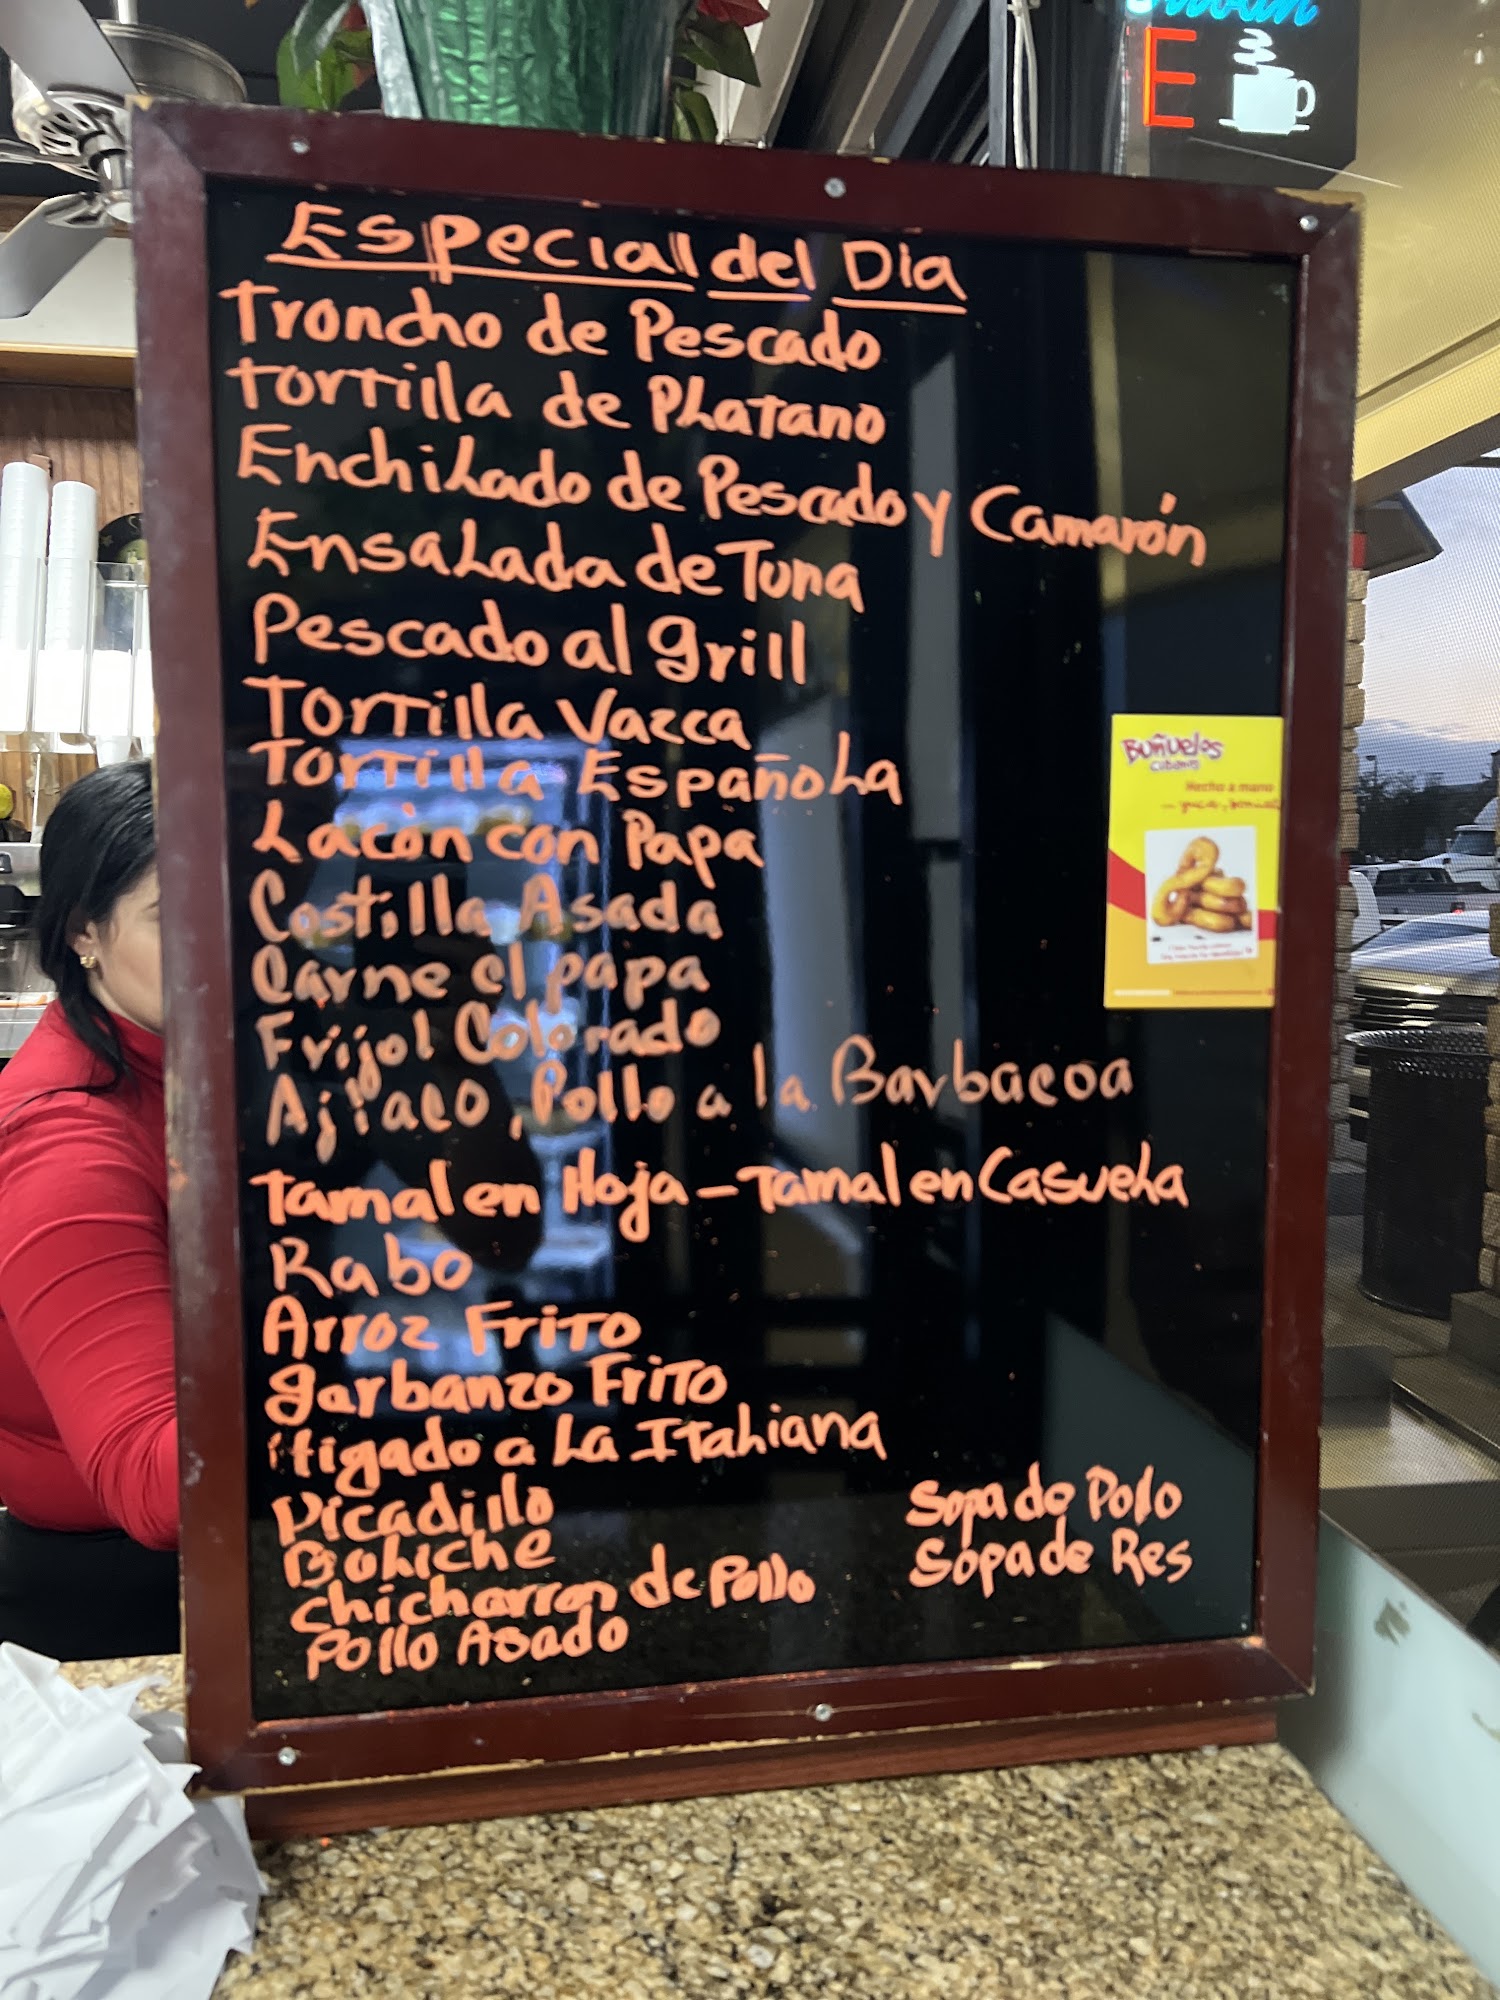 E
Especial del Dia
Troncho de Pescado
Tortilla de Platano
Enchilado de Pescado y Camarón
Ensalada de Tuna
Pescado al grill
Tortilla Vazca
Tortilla Española
Lacón con Papa
Costilla Asada
Carne el papa
Frijol Colorado
Ajiaco, Pollo a la Barbacoa
Tamal en Hoja - Tamal en Casuela
Rabo
Arroz Frito
garbanzo Frito
Higado a la Italiana
Picadillo
Boliche
chicharron de Pollo
Pollo Asado
Sopa de Pollo
Sopa de Res
Buñuelos
Cubanos
Hecho a mano